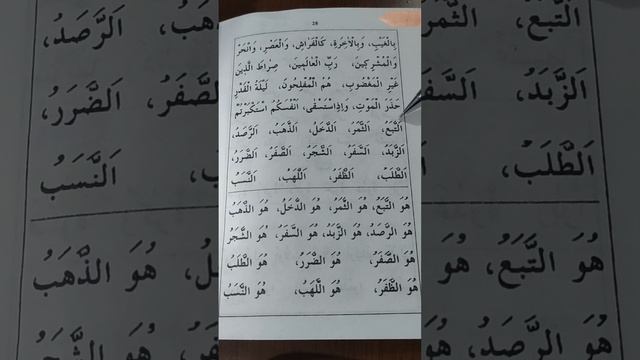 28
بِالْغَيْبِ، وَبِالْاٰخِرَةِ، كَالْفَرَاشِ، وَالْعَصْرِ، وَانْحَرْ
وَالْمُشْرِكِينَ، رَبِّ الْعَالَمِينَ، صِرَاطَ الَّذِينَ
غَيْرِ الْمَغْضُوبِ، هُمُ الْمُفْلِحُونَ، لَيْلَةُ الْقَدْرِ
حَذَرَ الْمَوْتِ، وَاِذِاسْتَسْقٰى، اَنْفُسُكُمُ اسْتَكْبَرْتُمْ
اَلتَّبَعُ، اَلثَّمَرُ، اَلدَّخَلُ، اَلذَّهَبُ، اَلرَّصَدُ،
اَلزَّبَدُ، اَلسَّفَرُ، اَلشَّجَرُ، اَلصَّفَرُ، اَلضَّرَرُ،
اَلطَّلَبُ، اَلظَّفَرُ، اَللَّهَبُ، اَلنَّسَبُ
هُوَ التَّبَعُ، هُوَ الثَّمَرُ، هُوَ الدَّخَلُ، هُوَ الذَّهَبُ
هُوَ الرَّصَدُ، هُوَ الزَّبَدُ، هُوَ السَّفَرُ، هُوَ الشَّجَرُ
هُوَ الصَّفَرُ، هُوَ الضَّرَرُ، هُوَ الطَّلَبُ
هُوَ الظَّفَرُ، هُوَ اللَّهَبُ، هُوَ النَّسَبُ